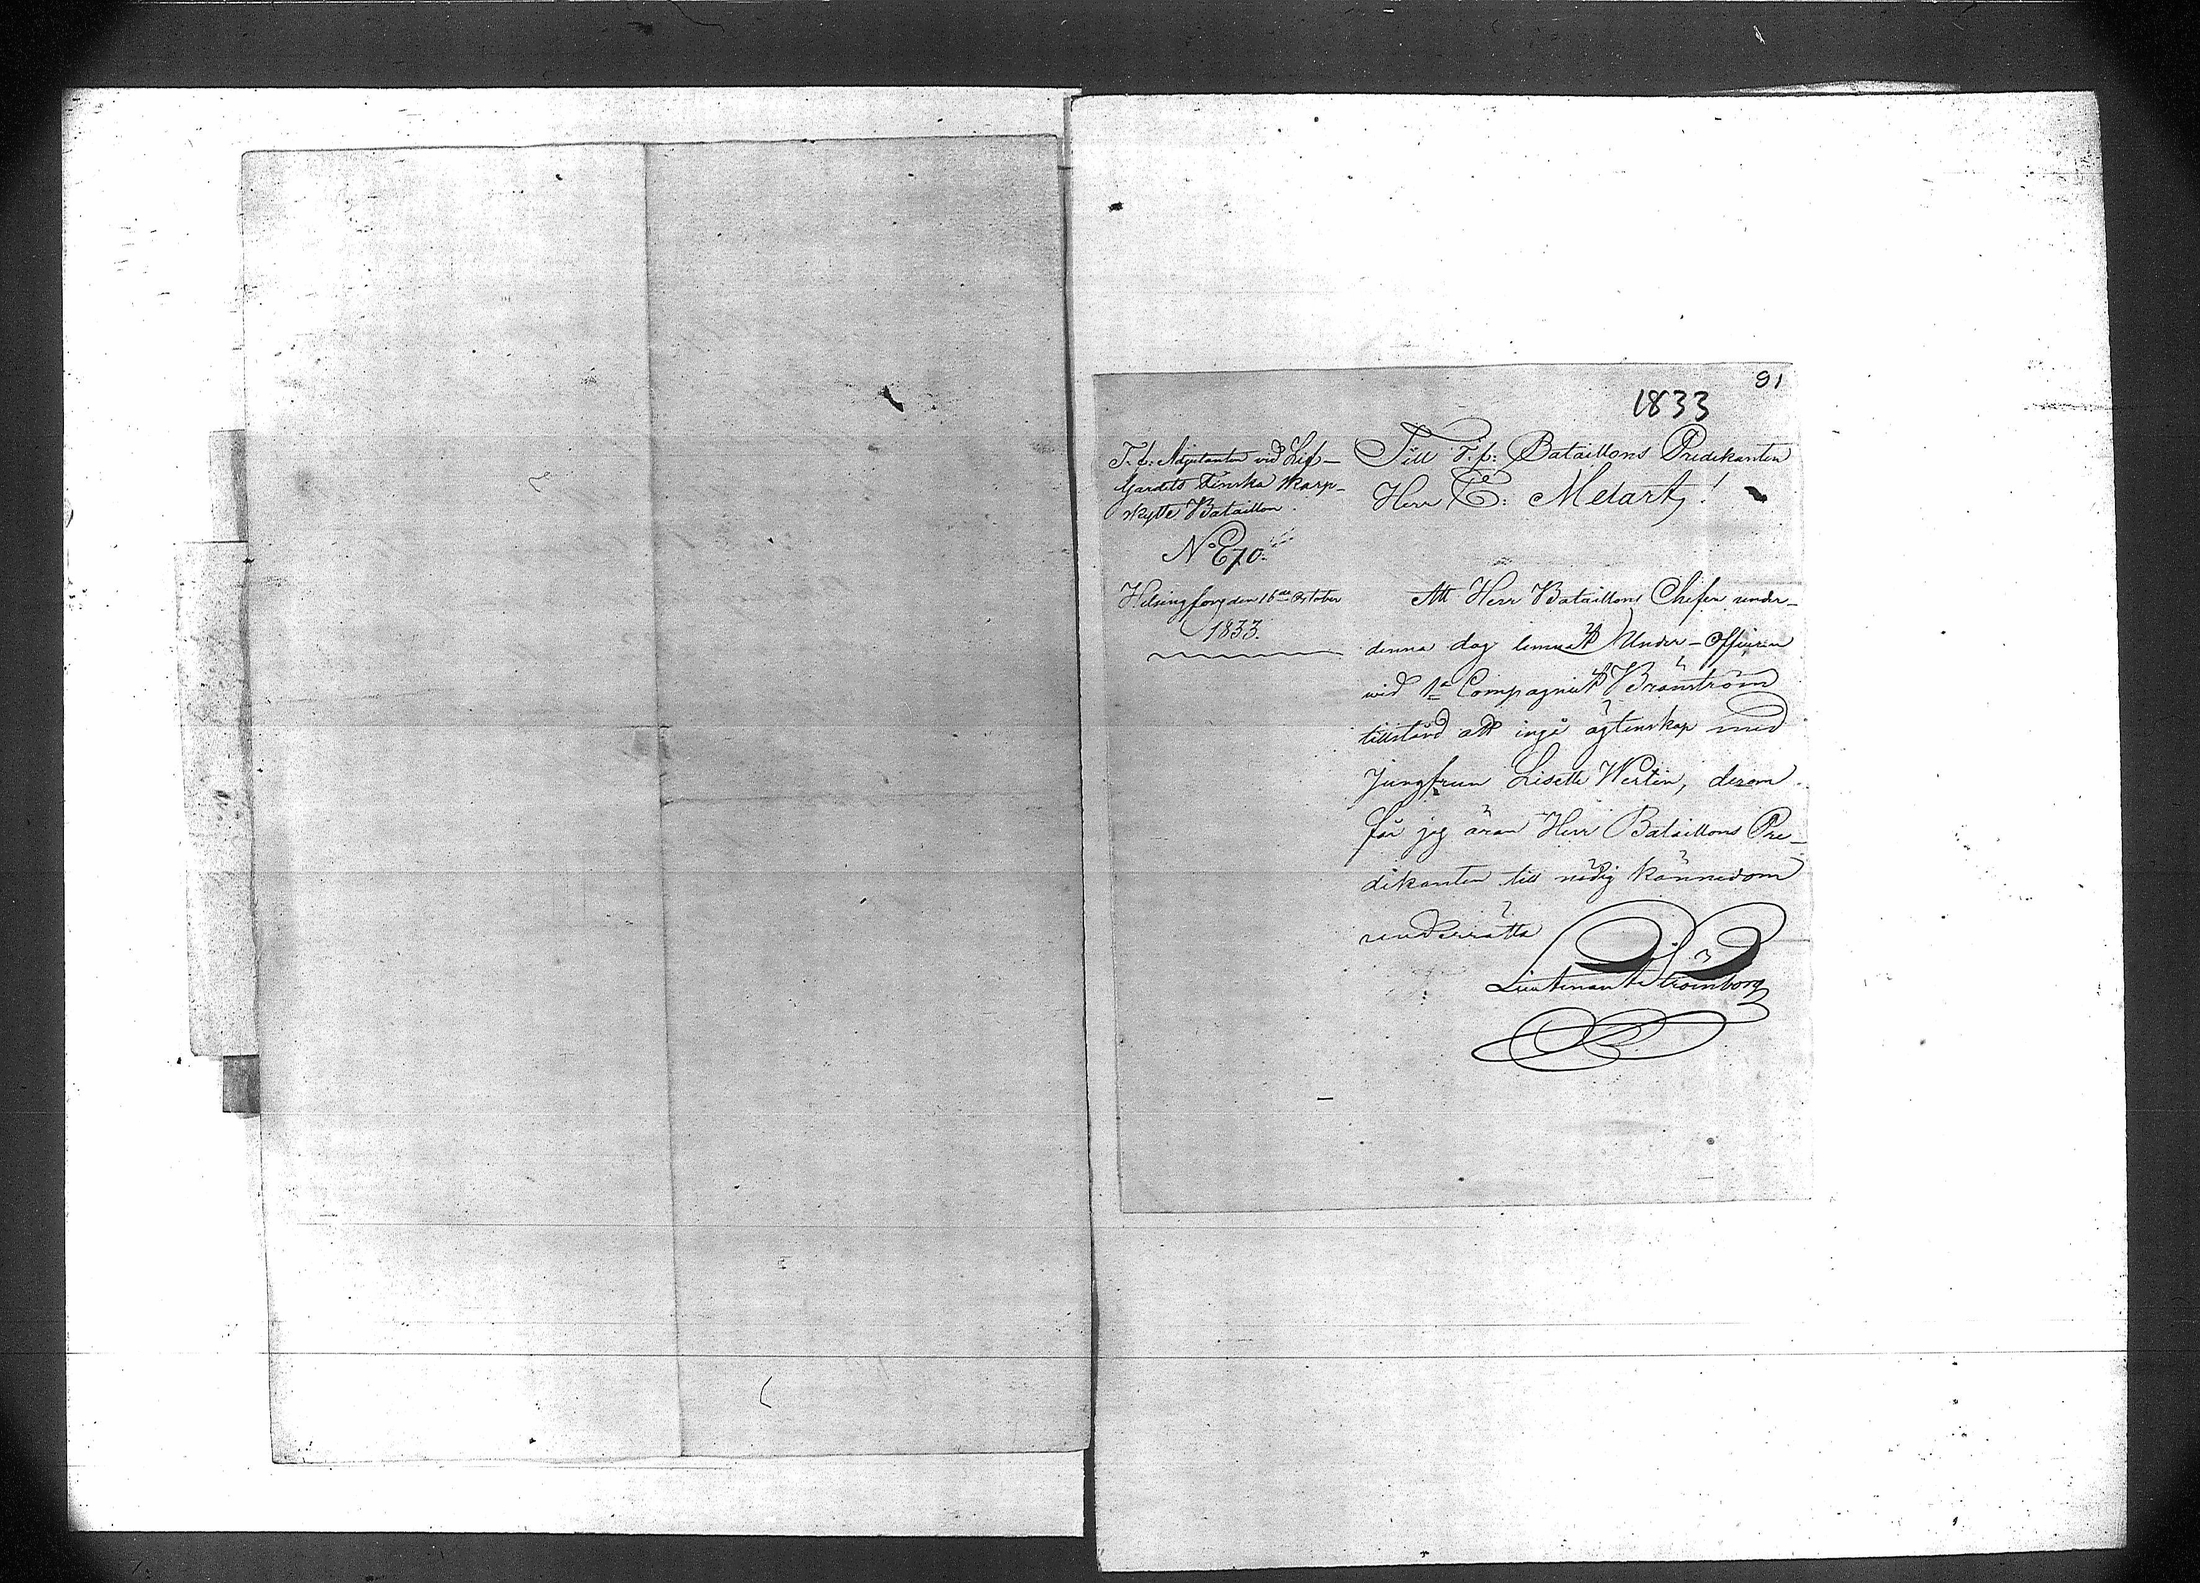 91
1833
T. f. Adjutanten vid Lif-
Gardets Finska Skarp-
skytte Bataillon.
No 670.
Helsingfors den 16de October
1833.
Till T. f. Bataillons Predikanten
Herr E. Melart!
Att Herr Bataillons Chefen under-
denna dag lemnat Under-Officeren
vid 1a Compagniet Brännström
tillstånd att ingå ägtenskap med
Jungfrun Lisette Wertin, derom
får jag äran Herr Bataillons Pre-
dikanten till nödig kännedom
underrätta
Lieutenant Strömborg